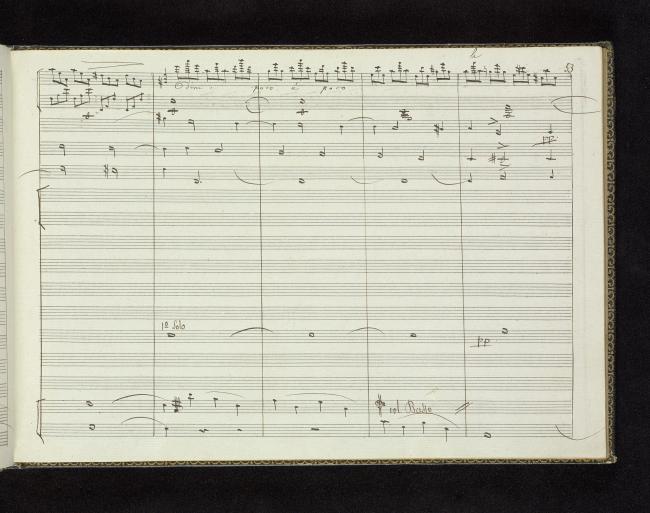 53
Dim: poco à poco
pp
1º Solo
pp
col Basso